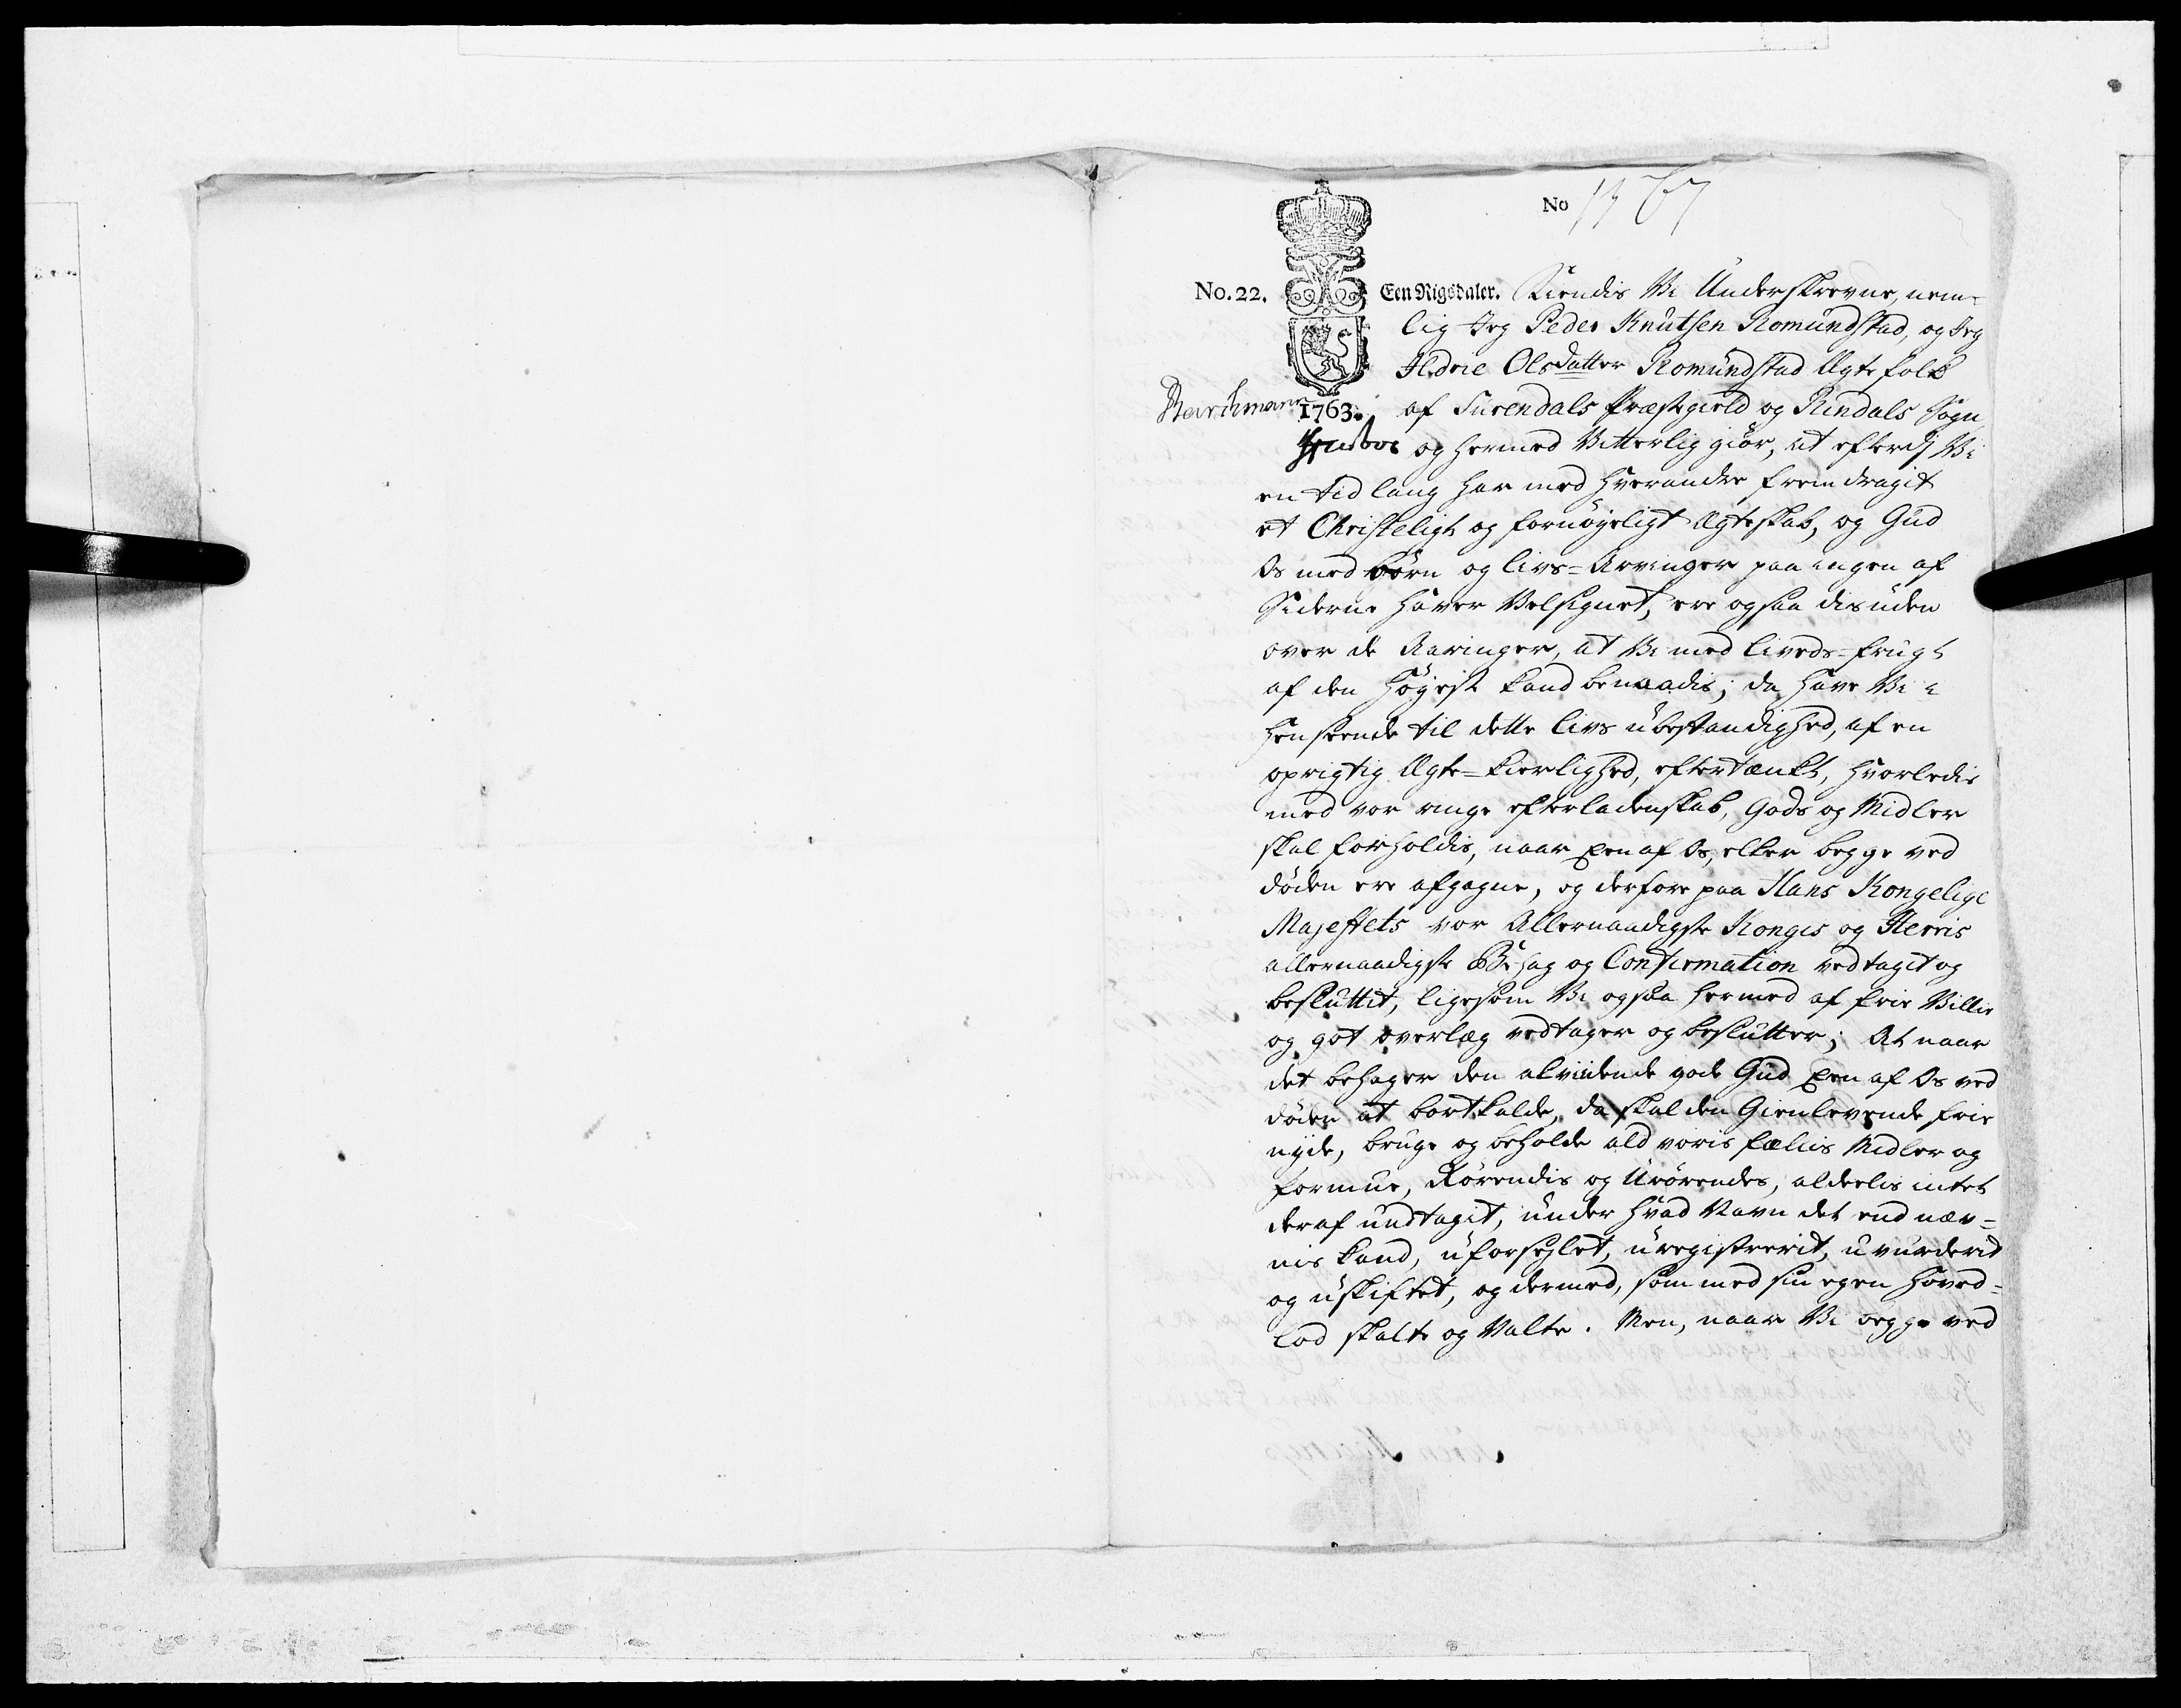 No 1767
No. 22. Een Rigsdaler. Kiendis Vi Underskrevne, nem-
lig Jeg Peder Knutsen Romundstad, og Jeg
Ildrie Olsdatter Romundstad Ægtefolk
1763. af Surendals Præstegield og Rindals Sogn
og hermed Vitterlig giør, at efterdj Vi
en tid lang har med hverandre fremdragit
et Christeligt og fornøyeligt Ægteskab, og Gud
Os med børn og livs-Arvinger paa ingen af
Siderne haver Velsignet, ere ogsaa desuden
over de Aaringer, at Vi med liveds-frugt
af den Høyeste kand benaadis; da have Vi i
henseende til dette livs ubestandighed, af en
oprigtig Ægte-kierlighed, eftertænkt, hvorledis
med vor ringe efterladenskab, Gods og Midler
skal forholdis, naar Een af Os, eller begge ved
døden ere afgagne, og derfore paa Hans Kongelige
Majestets vor Allernaadigste Konges og Herris
allernaadigste Behag og Confirmation vedtagit og
besluttit, ligesom Vi ogsaa hermed af frie Villie
og got overlæg vedtager og beslutter; At naar
det behager den alviidende gode Gud Een af Os ved
døden at bortkalde, da skal den Gienlevende frie
nyde, bruge og beholde ald voris fællis Midler og
formue, Rørendis og Urørendes, alderlis intet
deraf undtagit, under hvad Navn det end næv-
nis kand, uforseglet, uregistrerit, uvurderit
og uskiftet, og dermed, som med sin egen hoved-
lod skalte og Valte. Men, naar Vi begge ved